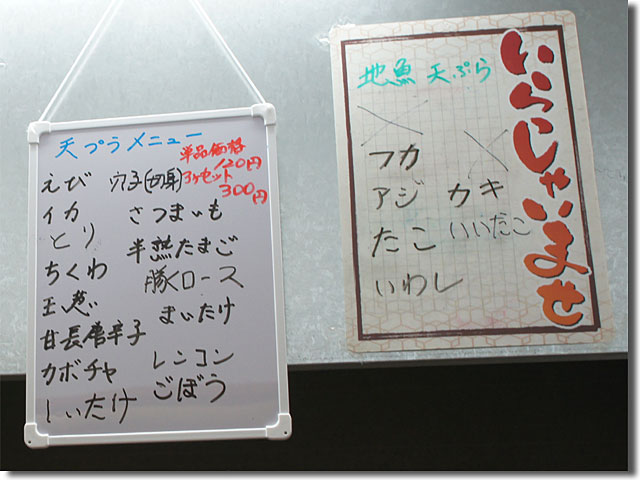 天プラメニュー
単品価格
120円
3ヶセット
300円
えび
イカ
とり
ちくわ
玉葱
甘長唐辛子
カボチャ
しいたけ
穴子(切身)
さつまいも
半熟たまご
豚ロース
まいたけ
レンコン
ごぼう
いらっしゃいませ
地魚天ぷら
フカ
アジ
たこ
いわし
カキ
いいだこ